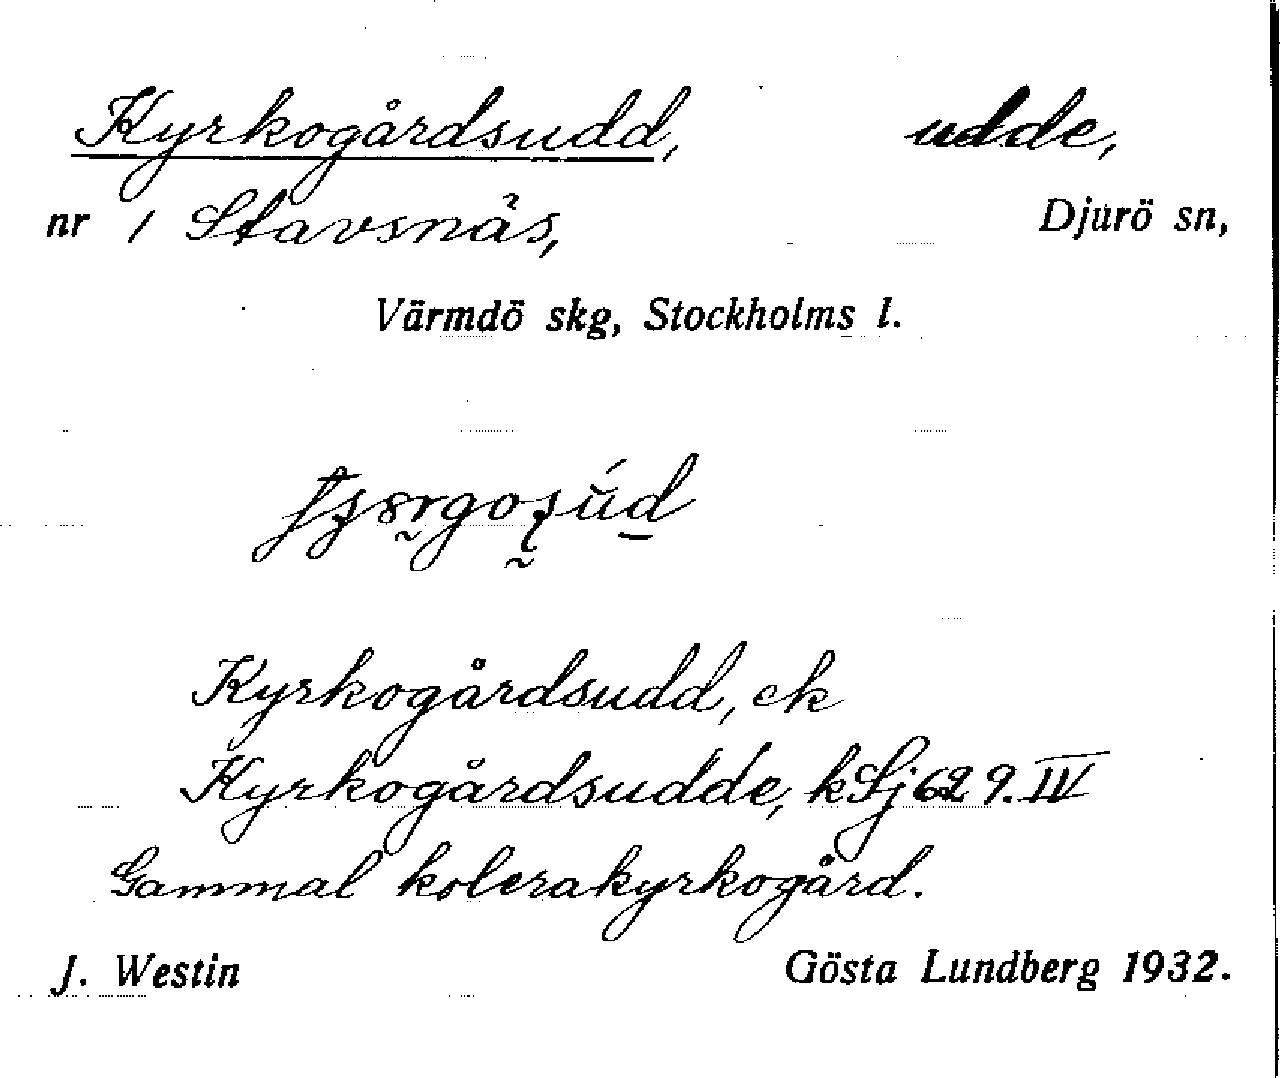 Kyrkogårdsudd, udde,
nr 1 Stavsnäs, Djurö sn,
Värmdö skg, Stockholms l.
Kyrkogårdsudd, ek
Kyrkogårdsudde, kSj 62 9. IV
Gammal kolerakyrkogård.
J. Westin Gösta Lundberg 1932.